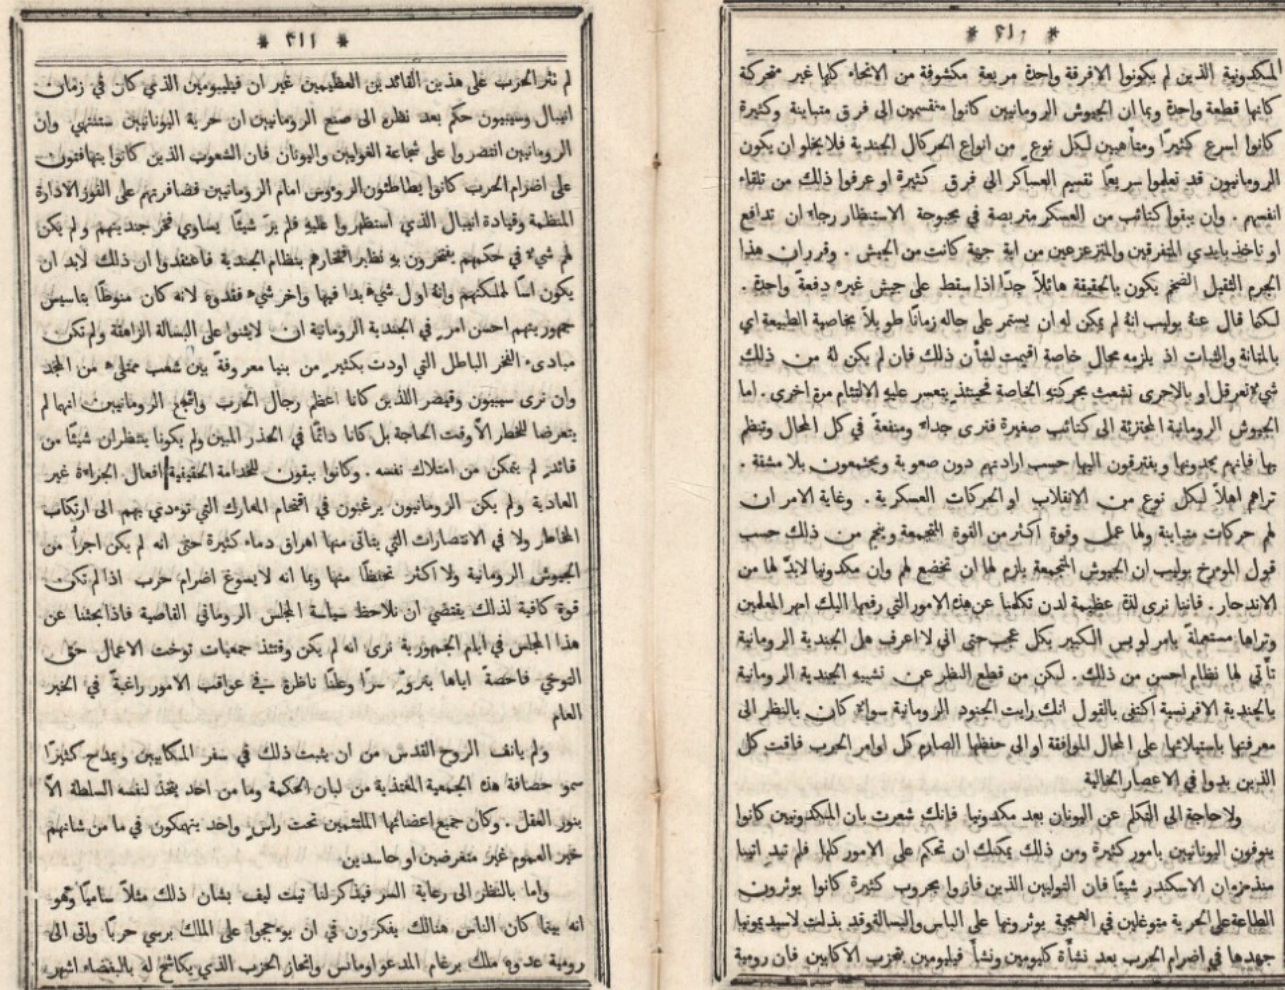 * ٢١٠ *
المكدونية الذين لم يكونوا الا فرقة واحدة مربعة مكشوفة من الانحاء كلها غير متحركة
كانها قطعة واحدة وبما ان الجيوش الرومانيين كانوا منقسمين الى فرق متباينة وكثيرة
كانوا اسرع كثيرًا ومتأهبين لكل نوع من انواع الحركات الجندية فلا يخلو ان يكون
الرومانيون قد تعلموا سريعًا تقسيم العساكر الى فرق كثيرة او عرفوا ذلك من تلقاء
انفسهم . وان يبقوا كتائب من العسكر متربصة في بحبوحة الاستظار رجاء ان تدافع
او تاخذ بايدي المتفرقين والمتزعزعين من اية جهة كانت من الجيش . وقرر ان هذا
الجرم الثقيل الضخم يكون بالحقيقة هائلًا جدًا اذا سقط على جيش غيره دفعة واحدة .
لكنا قال عنه بوليب انه لم يمكن له ان يستمر على حاله زمانًا طويلًا بخاصية الطبيعة اي
بالمتانة والثبات اذ يلزمه مجال خاصة اقيمت لشأن ذلك فان لم يكن له من ذلك
شيء تعرقل او بالاحرى تشعث بحركته الخاصة فحينئذ يتعسر عليه الالتئام مرة اخرى . اما
الجيوش الرومانية المجتزئة الى كتائب صغيرة فترى جداء ومنفعة في كل المحال وتنظم
بها فانهم يجدونها ويفترقون اليها حسب ارادتهم دون صعوبة ويجتمعون بلا مشقة .
تراهم اهلًا لكل نوع من الانقلاب او الحركات العسكرية . وغاية الامر ان
لهم حركات متباينة ولها عمل وقوة اكثر من القوة المتجمعة وينجم من ذلك حسب
قول المؤرخ بوليب ان الجيوش المتجمعة يلزم لها ان تخضع لهم وان مكدونيا لا بدّ لها من
الاندحار . فاننا نرى لذة عظيمة لدن تكلمنا عن هذه الامور التي رفعها اليك امهر المعلمين
وتراها مستعملة بامر لويس الكبير بكل عجب حتى اني لا اعرف هل الجندية الرومانية
تأتي لها نظام احسن من ذلك . لكن من قطع النظر عن تشبيه الجندية الرومانية
بالجندية الافرنسية اكتفى بالقول انك رايت الجنود الرومانية سواء كان بالنظر الى
معرفتها باستيلائها على المحال الموافقة او الى حفظها الصارم كل اوامر الحرب فاقت كل
الذين بدوا في الاعصار الخالية
ولا حاجة الى التكلم عن اليونان بعد مكدونيا فانك شعرت بان المكدونيين كانوا
يفوقون اليونانيين بامور كثيرة ومن ذلك يمكنك ان تحكم على الامور كلها فلم تبد اتيبا
منذ زمان الاسكندر شيئًا فان التوليين الذين فازوا بحروب كثيرة كانوا يوثرون
الطاعة على الحرية متوغلين في الهمجية يوثرونها على الباس والبسالة وقد بذلت لاسيديمونيا
جهدها في اضرام الحرب بعد نشأة كليومين ونشأ فيليومين بتحزب الاكابين فان رومية
* ٢١١ *
لم تثر الحرب على هذين القائدين العظيمين غير ان فيليبومين الذي كان في زمان
انيبال وسيبيون حكم بعد نظره الى صنع الرومانيين ان حرية اليونانيين ستنتهي وان
الرومانيين انتصروا على شجاعة الغوليين واليونان فان الشعوب الذين كانوا يتهافتون
على اضرام الحرب كانوا يطاطئون الرووس امام الرومانيين فضافرتهم على الفوز الادارة
المنظمة وقيادة انيبال الذي استظهروا عليه فلم ير شيئًا يساوي فخر جنديتهم ولم يكن
لهم شيء في حكمهم يفتخرون به نظير افتخارهم بنظام الجندية فاعتقدوا ان ذلك لابد ان
يكون اسًا لمملكتهم وانه اول شيء بدا فيها واخر شيء فقدوه لانه كان منوطًا بتاسيس
جمهوريتهم احسن امر في الجندية الرومانية ان لا يثنوا على البسالة الزاهقة ولم تكن
مبادىء الفخر الباطل التي اودت بكثير من بنيا معروفة بين شعب ممتلىء من المجد
وان نرى سيبيون وقيصر اللذين كانا اعظم رجال الحرب واشجع الرومانيين انهما لم
يتعرضا للخطر الا وقت الحاجة بل كانا دائمًا في الحذر المبين ولم يكونا ينتظران شيئًا من
قائد لم يتمكن من امتلاك نفسه . وكانوا يبقون للخدامة الحقيقية افعال الجراءة غير
العادية ولم يكن الرومانيون يرغبون في اقتحام المعارك التي تودي بهم الى ارتكاب
المخاطر ولا في الانتصارات التي يتاتى منها اهراق دماء كثيرة حتى انه لم يكن اجرأ من
الجيوش الرومانية ولا اكثر تحفظًا منها وبما انه لا يسوغ اضرام حرب اذا لم تكن
قوة كافية لذلك يقتضي ان نلاحظ سياسة المجلس الروماني القاصية فاذا بحثنا عن
هذا المجلس في ايام الجمهورية نرى انه لم يكن وقتئذ جمعيات توخت الاعمال حق
التوخي فاحصة اياها بتروّ سرًا وعلنًا ناظرة في عواقب الامور راغبة في الخير
العام
ولم يانف الروح القدس من ان يثبت ذلك في سفر المكابيين ويمدح كثيرًا
سمو حصافة هذه الجمعية المغتذية من لبان الحكمة وما من احد يتخذ لنفسه السلطة الا
بنور العقل . وكان جميع اعضائها الملتئمين تحت راس واحد ينهمكون في ما من شانهم
خير العموم غير متغرضين او حاسدين
واما بالنظر الى رعاية السر فيذكر لنا تيت ليف بشان ذلك مثلًا ساميًا وهو
انه بينما كان الناس هنالك يفكرون في ان يوججوا على الملك برسي حربًا واتى الى
رومية عدوه ملك برغام المدعو اومانس وانحاز الحزب الذي يكاشح له بالبغضاء اشهر